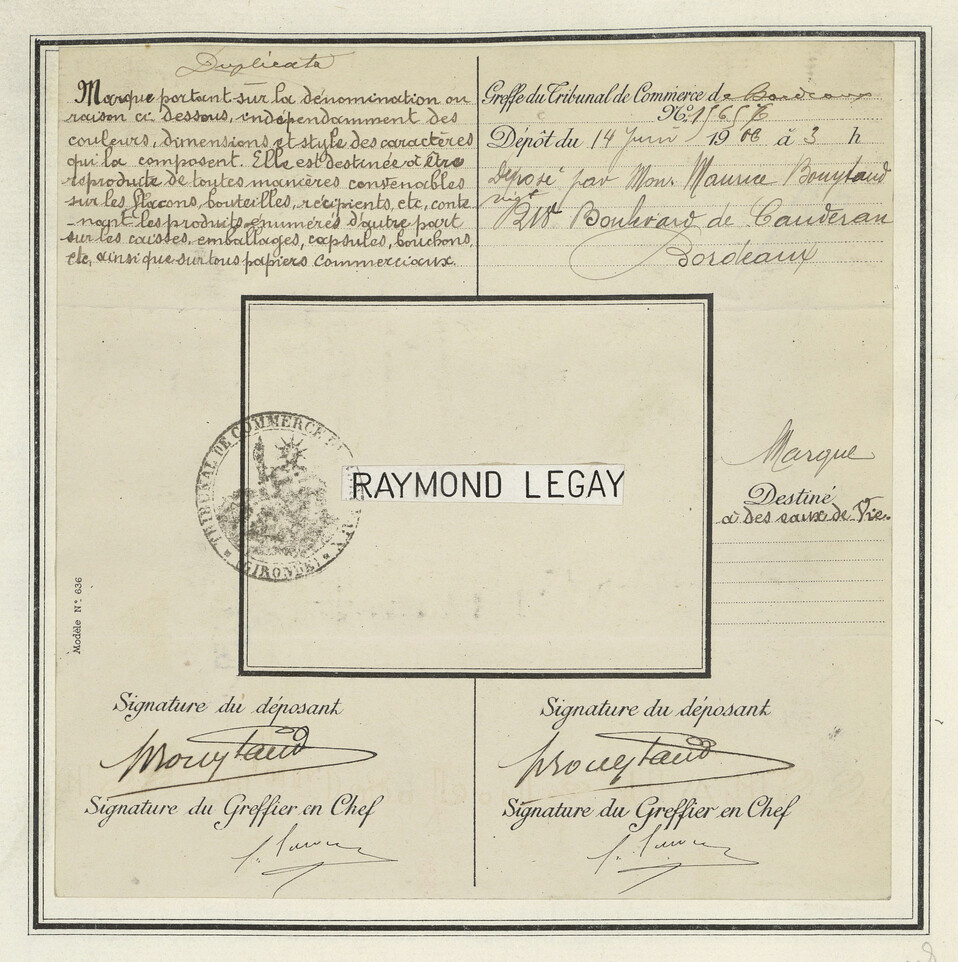 Duplicata
Marque portant sur la dénomination ou
raison ci dessous, indépendamment des
couleurs, dimensions et style des caractères
qui la composent. Elle est destinée à être
reproducte de toutes manières convenables
sur les flacons, bouteilles, récipients, etc, conte
-nant les produits enumérés d'autre part
sur les caisses, emballages, capsules, bouchons,
etc, ainsi que sur tous papiers commerciaux.
Greffe du Tribunal de Commerce de Bordeaux
N°. 15657
Dépôt du 14 Juin 1906 à 3 h
Déposé par Mons Maurice Bouytaud
negt
Boulevard de Cauderan
Bordeaux
TRIBUNAL DE COMMERCE
(GIRONDE)
RAYMOND LEGAY
Marque
Destiné
à des eaux de Vie.
Modèle N° 636
Signature du déposant
Bouytaud
Signature du Greffier en Chef
Signature du déposant
Bouytaud
Signature du Greffier en Chef